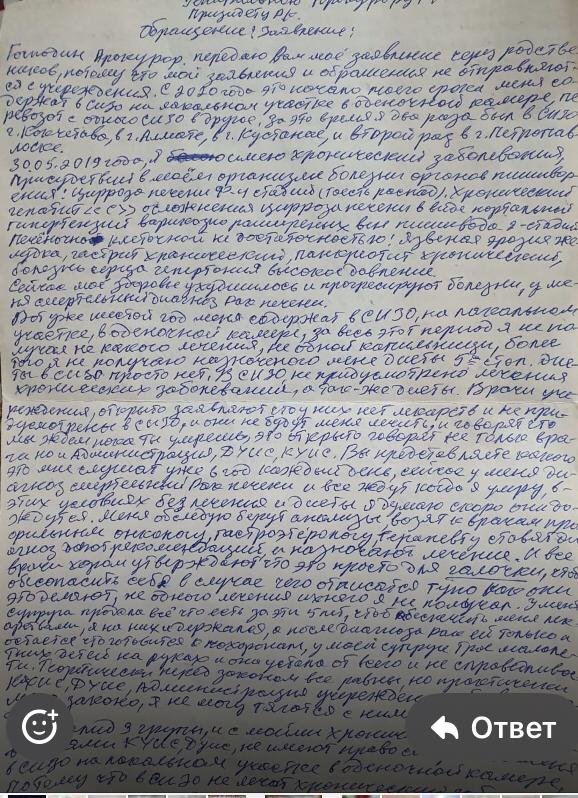 Президенту РК.
Обращение! Заявление!
Господин Прокурор, передаю Вам моё заявление через родстве
ников, потому что мои заявления и обращения не отправляют-
ся с учреждения. С 2020 года это начало моего срока, меня со-
держат в Сизо на локальном участке в оденочной камере, пе
ревозят с одного сизо в другое, за это время я два раза был в СИЗО
г. Кокчетава, в г. Алмате, в г. Кустанае, и второй раз в г. Петропав
ловске.
30.05.2019 года, я имею хронический заболевания,
в моём организме болезни органов пишивор-
ения! Цирроза печени стадий (тоесть распад). Хронический
гепатит <<С>> осложнения цирроза печени в виде портальной
гипертензий варикозно расширенных вен пишивода 2-стадий
Печёночно клеточной не достаточностью! Язвеная эрозия же
лудка, гастрит хронический, панкриотит хронический,
болезнь серца гепертония высокое давление.
Сейчас моё здоровье ухудшилось и прогресируют болезни, у ме
ня смертельный диагноз Рак печени.
Вот уже шестой год меня содержат в СИЗО, на локальном
участке, в оденочной камере, за весь этот период я не по
лучил не какого лечения, не одной капильницы, более
того я не получаю назначеного мене диеты 5 стол, дие
ты в СИЗО просто нет, В СИЗО не придусмотрено лечения
хронических заболеваний, а так-же диеты. Врачи учре
ждения, открыто заявляют что у них нет лекарств и не при-
дусмотрены в СИЗО, и они не будут меня лечить, и говорят что
мы ждём пока ты умрёшь, это открыто говорят не только вра-
чи но и Администрация, ДУИС, КУИС. Вы представляете каково
это мне слушать уже 6 год каждый день, сейчас у меня ди-
агноз смертельный Рак печени и все ждут когда я умру, в-
этих условиях без лечения и диеты я думаю скоро они до-
ждутся. Меня обследуют берут анализы, возят к врачам про
фильным онкологу, гастроэтерологу, терапевту ставят ди
агноз дают рекомендаций, и назначают лечение. И все
врачи хором утверждают что это просто для галочки, чтоб
обезопасить себя в случае чего отписатся тупо
это делают, не одного лечения я не получал. У меня
супруга продала всё что есть за эти 5 лет, чтоб обеспечить меня лек-
арствами, я на них и держался, а после диагноза Рак ей только и
остаётся что готовится к похоронам, у моей супруги трое малоле-
тних детей на руках и она устала от всего и не справедливос
ти. Теоритически перед законом все равны, но практически
КУИС, ДУИС, Администрация учереждения
законо, я не могу тягатся с ними
3 группы, и с моими хронич
КУИС, ДУИС, не имеют право с
в СИЗО на локальном участке в оденочной камере,
Потому что в СИЗО не лечат хронический
Ответ